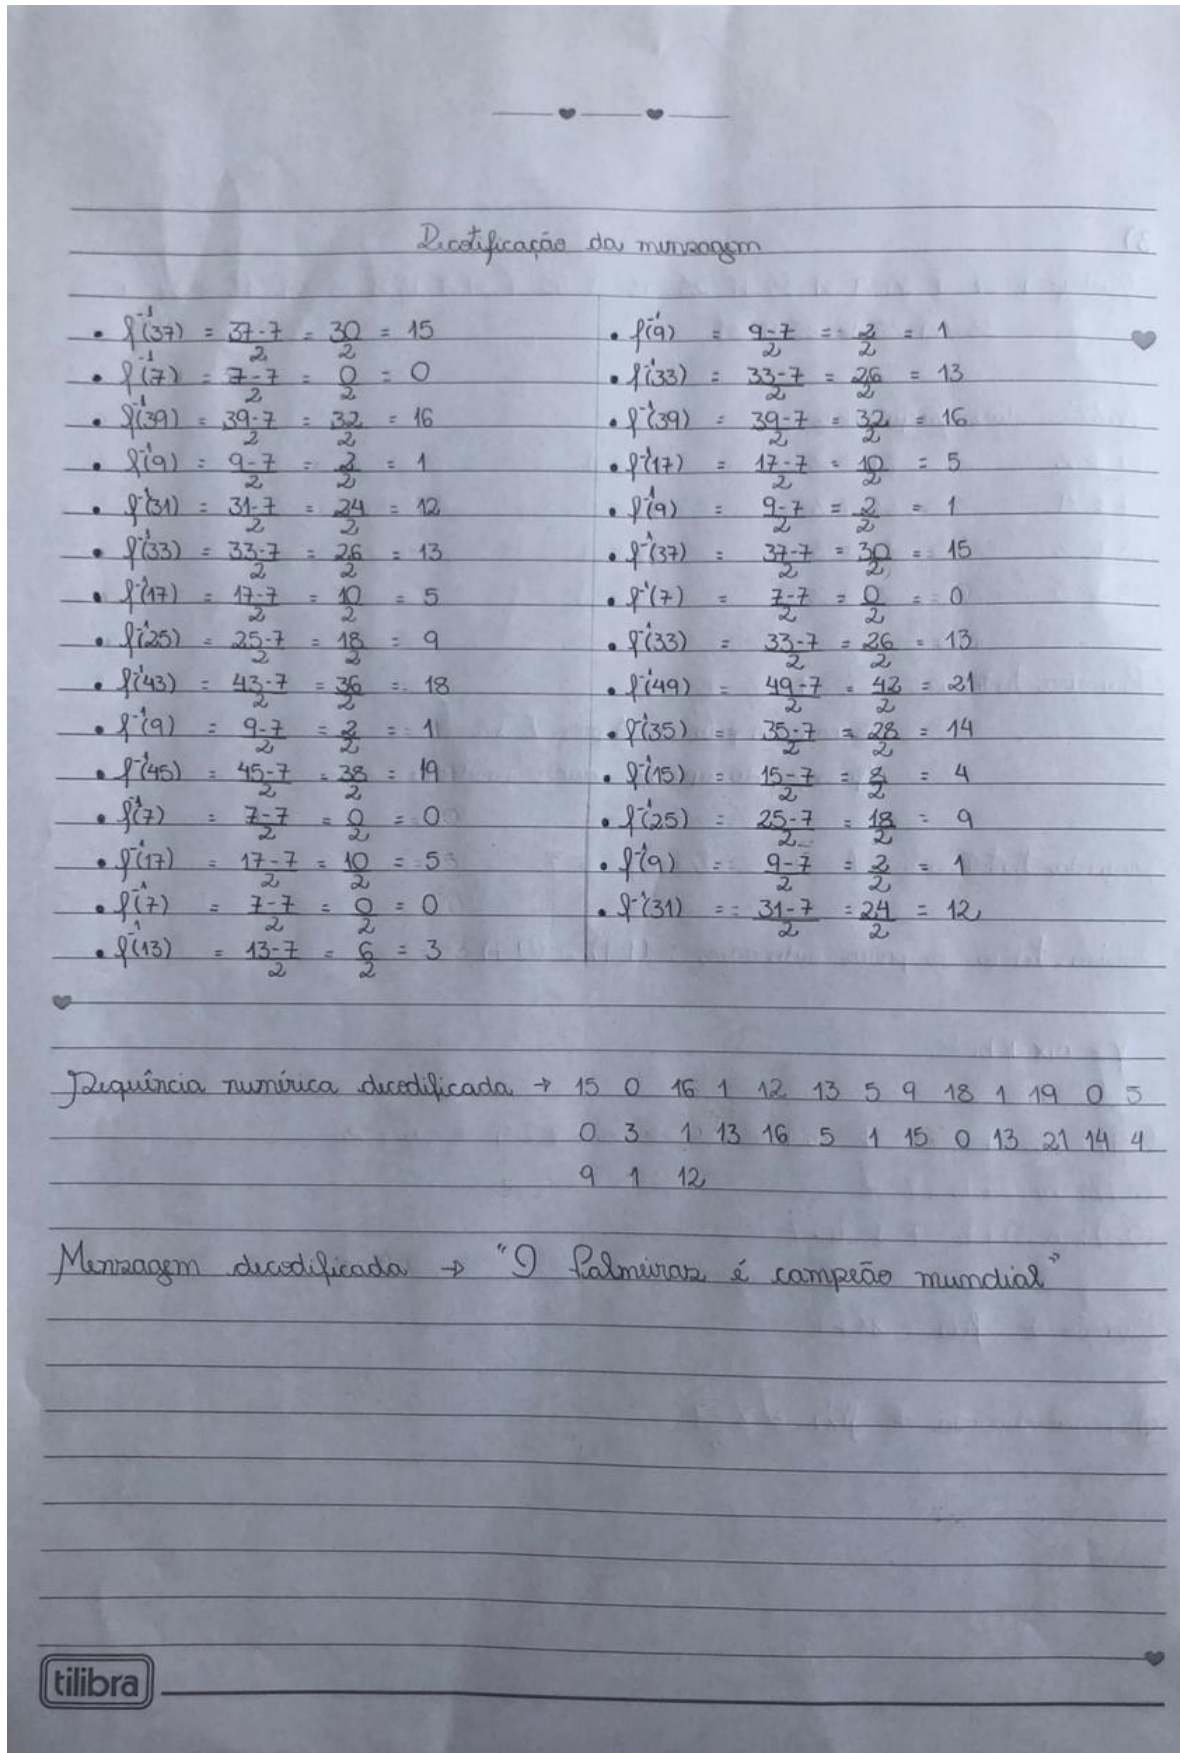 Decotificação da mensagem
• f⁻¹(37) = 37-7/2 = 30/2 = 15
• f⁻¹(7) = 7-7/2 = 0/2 = 0
• f⁻¹(39) = 39-7/2 = 32/2 = 16
• f⁻¹(9) = 9-7/2 = 2/2 = 1
• f⁻¹(31) = 31-7/2 = 24/2 = 12
• f⁻¹(33) = 33-7/2 = 26/2 = 13
• f⁻¹(17) = 17-7/2 = 10/2 = 5
• f⁻¹(25) = 25-7/2 = 18/2 = 9
• f⁻¹(43) = 43-7/2 = 36/2 = 18
• f⁻¹(9) = 9-7/2 = 2/2 = 1
• f⁻¹(45) = 45-7/2 = 38/2 = 19
• f⁻¹(7) = 7-7/2 = 0/2 = 0
• f⁻¹(17) = 17-7/2 = 10/2 = 5
• f⁻¹(7) = 7-7/2 = 0/2 = 0
• f⁻¹(13) = 13-7/2 = 6/2 = 3
• f⁻¹(9) = 9-7/2 = 2/2 = 1
• f⁻¹(33) = 33-7/2 = 26/2 = 13
• f⁻¹(39) = 39-7/2 = 32/2 = 16
• f⁻¹(17) = 17-7/2 = 10/2 = 5
• f⁻¹(9) = 9-7/2 = 2/2 = 1
• f⁻¹(37) = 37-7/2 = 30/2 = 15
• f⁻¹(7) = 7-7/2 = 0/2 = 0
• f⁻¹(33) = 33-7/2 = 26/2 = 13
• f⁻¹(49) = 49-7/2 = 42/2 = 21
• f⁻¹(35) = 35-7/2 = 28/2 = 14
• f⁻¹(15) = 15-7/2 = 8/2 = 4
• f⁻¹(25) = 25-7/2 = 18/2 = 9
• f⁻¹(9) = 9-7/2 = 2/2 = 1
• f⁻¹(31) = 31-7/2 = 24/2 = 12
Sequência numérica decodificada → 15 0 16 1 12 13 5 9 18 1 19 0 5
0 3 1 13 16 5 1 15 0 13 21 14 4
9 1 12
Mensagem decodificada → "O Palmeiras é campeão mundial"
tilibra